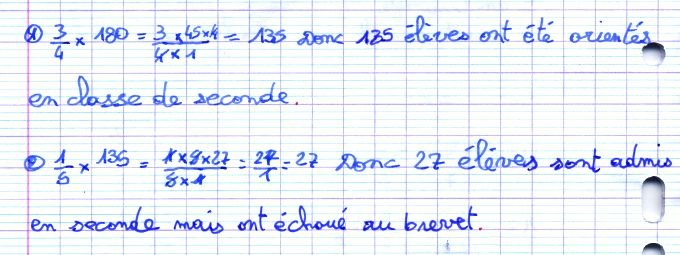 ① 3/4 × 180 = 3 × 45 × 4 / 4 × 1 = 135 Donc 135 élèves ont été orientés
en classe de seconde.
② 1/5 × 135 = 1 × 5 × 27 / 5 × 1 = 27/1 = 27 Donc 27 élèves sont admis
en seconde mais ont échoué au brevet.